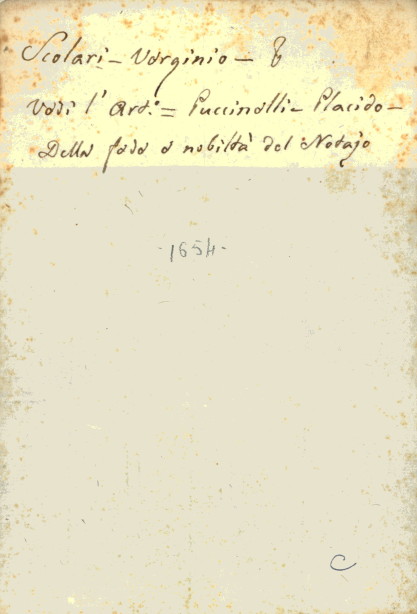 Scolari - Verginio -
Vedi l' Art.° = Puccinelli - Placido -
Della fede e nobiltà del Notajo
- 1654 -
C